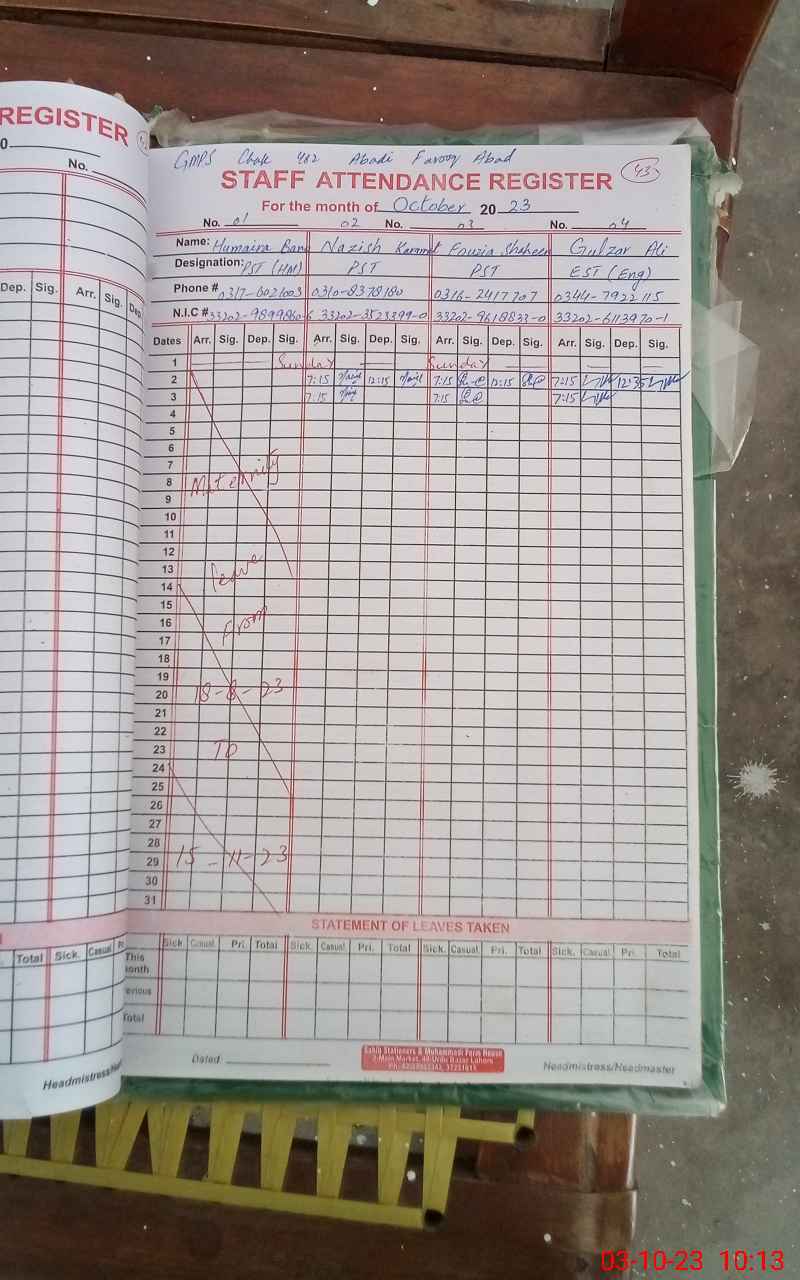 REGISTER
0
No.
Dep. Sig. Arr. Sig. Dep
Total Sick. Casual
Headmistress/Head
GMPS Chak 482 Abadi Farooq Abad
STAFF ATTENDANCE REGISTER 43
For the month of October 2023
No. 01 02 No. 03 No. 04
Name: Humaira Bano Nazish Karamat Fouzia Shaheen Gulzar Ali
Designation: PST (HM) PST PST EST (Eng)
Phone # 0317-6021003 0310-8378180 0316-2417707 0344-7922115
N.I.C # 33202-3523399-0 33202-9618833-0 33202-6113970-1
Dates Arr. Sig. Dep. Sig. Arr. Sig. Dep. Sig. Arr. Sig. Dep. Sig. Arr. Sig. Dep. Sig.
1 Sunday Sunday
2 7:15 12:15 7:15 12:15 7:15 12:35
3 7:15 7:15 7:15
4
5
6
7
8 Maternity
9
10
11
12
13 leave
14
15
16 From
17
18
19
20 18-8-23
21
22
23 To
24
25
26
27
28
29 15-11-23
30
31
STATEMENT OF LEAVES TAKEN
Sick. Casual. Pri. Total Sick. Casual. Pri. Total Sick. Casual. Pri. Total Sick. Casual. Pri. Total
This
onth
evious
otal
Dated
Headmistress/Headmaster
03-10-23 10:13